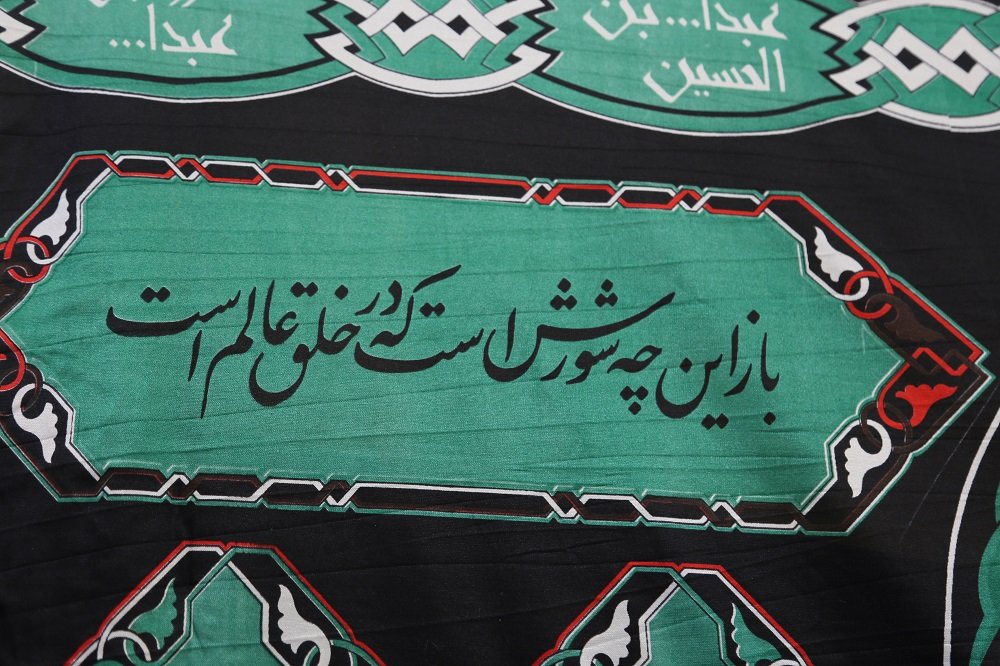 عبدا... بن
الحسین
عبدا...
باز این چه شورش است که در خلق عالم است